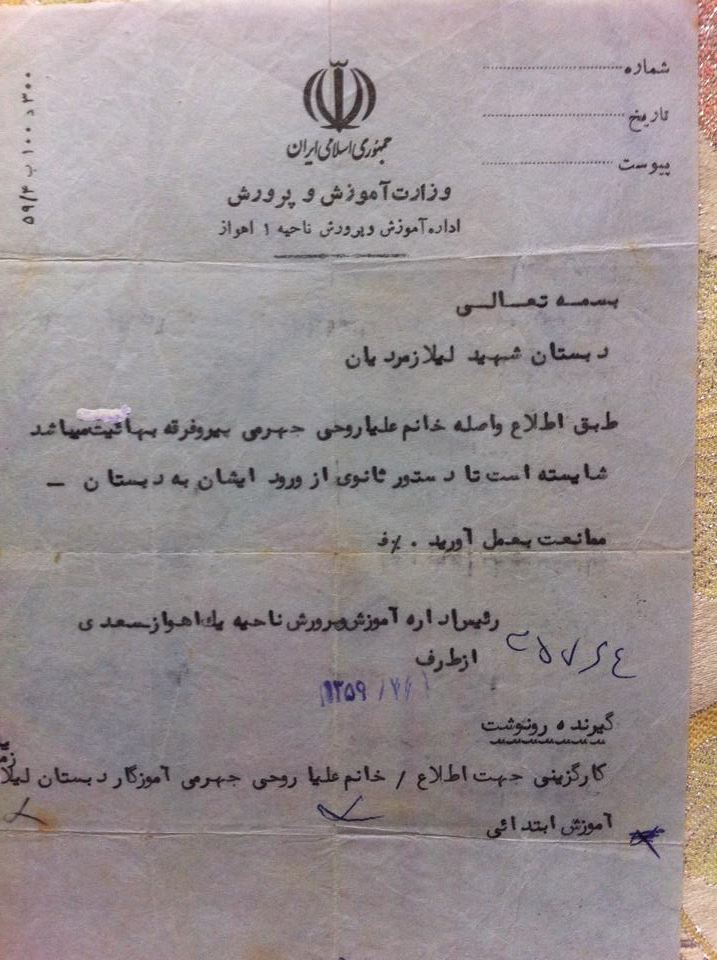 شماره
تاریخ
پیوست
۳۰۰ د ۱۰۰ ب ۵۹/۴
جمهوری اسلامی ایران
وزارت آموزش و پرورش
اداره آموزش و پرورش ناحیه ۱ اهواز
بسمه تعالی
دبستان شهید لیلازمردیان
طبق اطلاع واصله خانم علیاروحی جهرمی پیروفرقه بهائیت میباشد
شایسته است تا دستور ثانوی از ورود ایشان به دبستان –
ممانعت بعمل آورید .
رئیس اداره آموزش وپرورش ناحیه یك اهواز سعدی
ازطرف
۱۳۵۹
گیرنده رونوشت
کارگزینی جهت اطلاع / خانم علیا روحی جهرمی آموزگار دبستان لیلا
آموزش ابتدائی